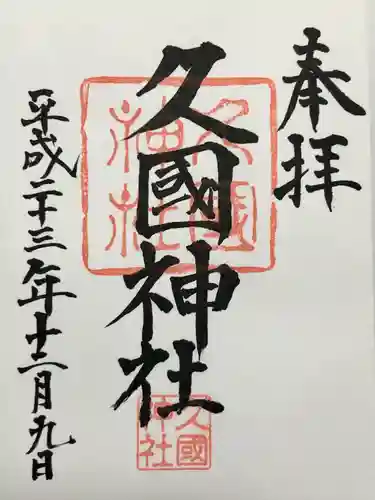 奉拝
久國神社
久國神社
久國神社
平成二十三年十二月九日